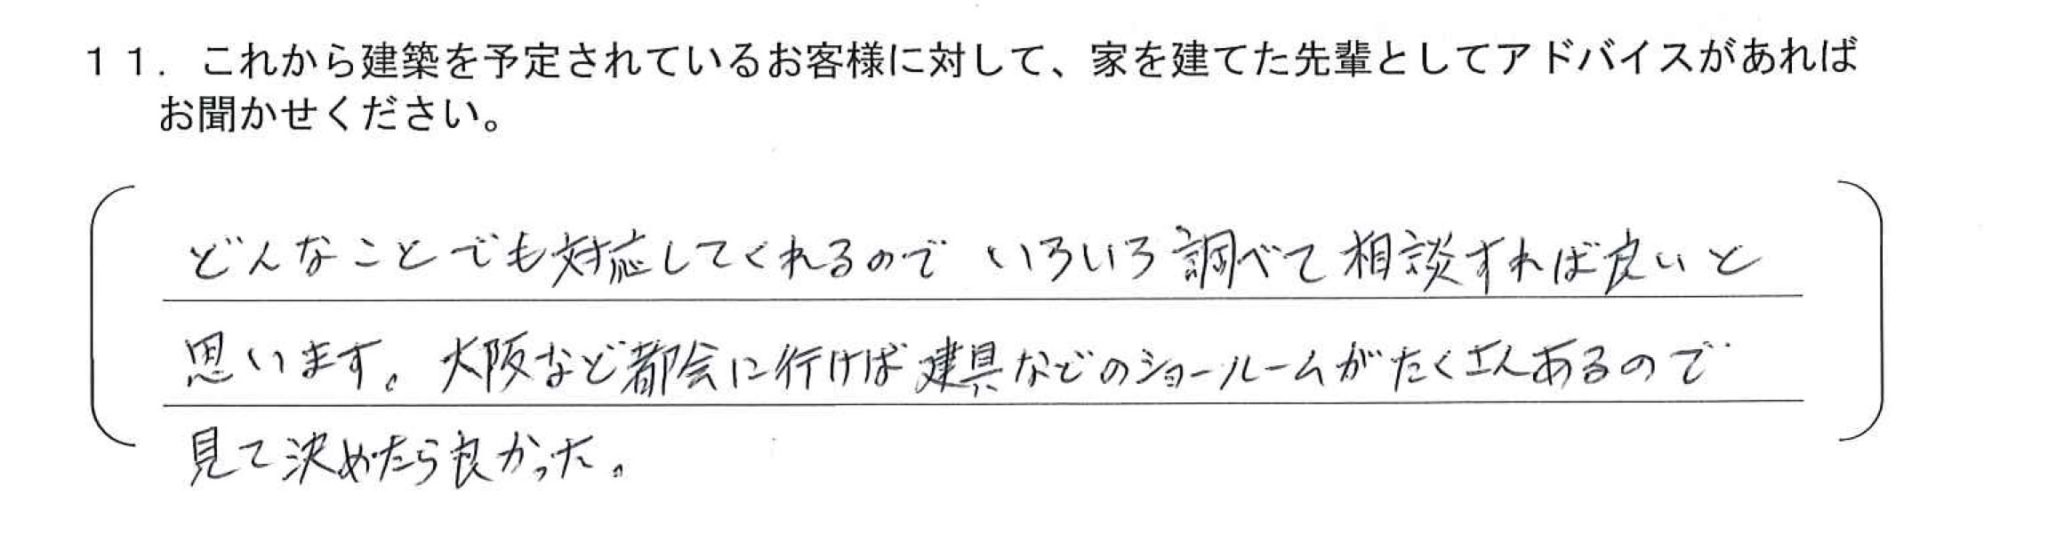 １１．これから建築を予定されているお客様に対して、家を建てた先輩としてアドバイスがあれば
お聞かせください。
どんなことでも対応してくれるので いろいろ調べて相談すれば良いと
思います。大阪など都会に行けば建具などのショールームがたくさんあるので
見て決めたら良かった。